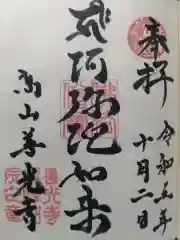 奉拝
令和五年
十月二日
阿弥陀如来
善光寺